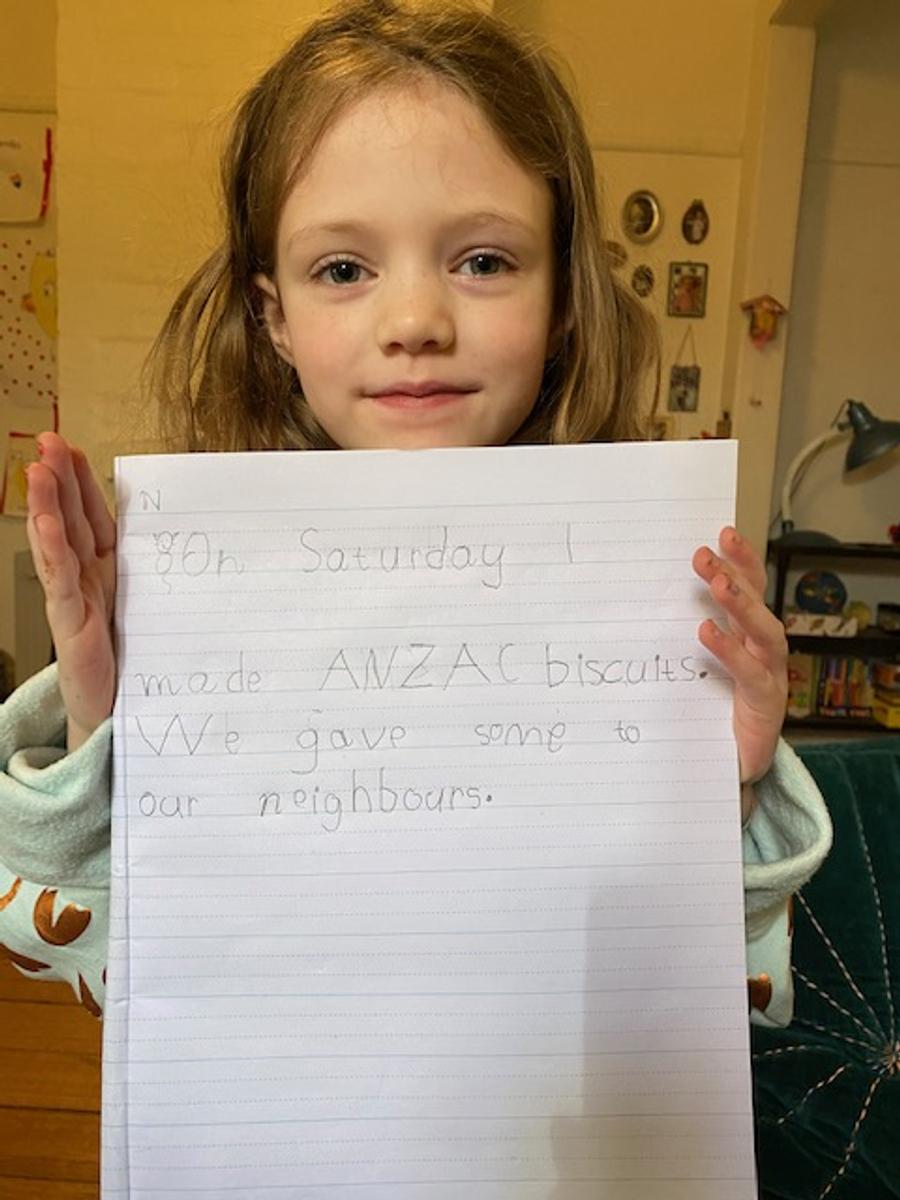 N
On Saturday I
made ANZAC biscuits.
We gave some to
our neighbours.